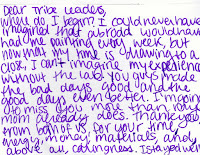 Dear Tribe Leaders,
Where do I begin, I could never have
imagined that abroad would have
had me painting every week, but
now that my time is drawing to a
close, I can't imagine my experience
without the art. You guys made
the bad days good and the
good days even better. I'm going
to miss you more than
mom already does. Thank you
from us, for your time,
energy, money, materials, and
above all, caringness. I stayed